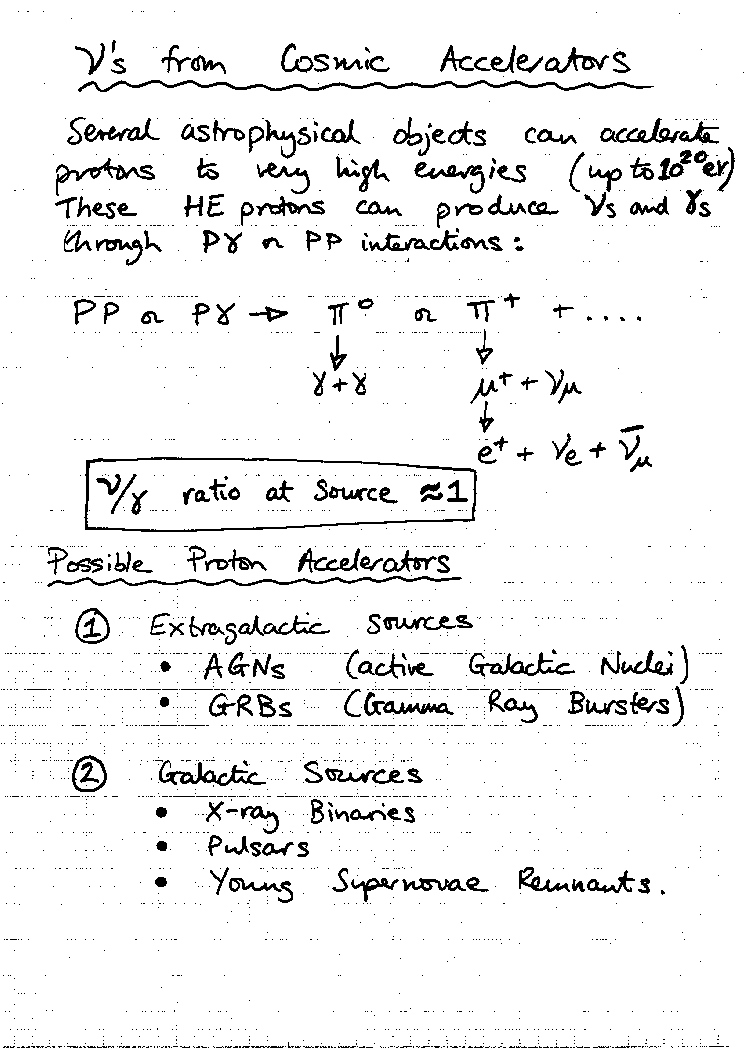 ν's from Cosmic Accelerators
Several astrophysical objects can accelerate
protons to very high energies (up to 10²⁰ eV)
These HE protons can produce νs and γs
through Pγ or PP interactions:
PP or Pγ → π⁰ or π⁺ + ....
↓ ↓
γ + γ μ⁺ + νμ
↓
e⁺ + νe + ν̄μ
ν/γ ratio at source ≈ 1
Possible Proton Accelerators
① Extragalactic sources
• AGNs (active Galactic Nuclei)
• GRBs (Gamma Ray Bursters)
② Galactic Sources
• X-ray Binaries
• Pulsars
• Young Supernovae Remnants.